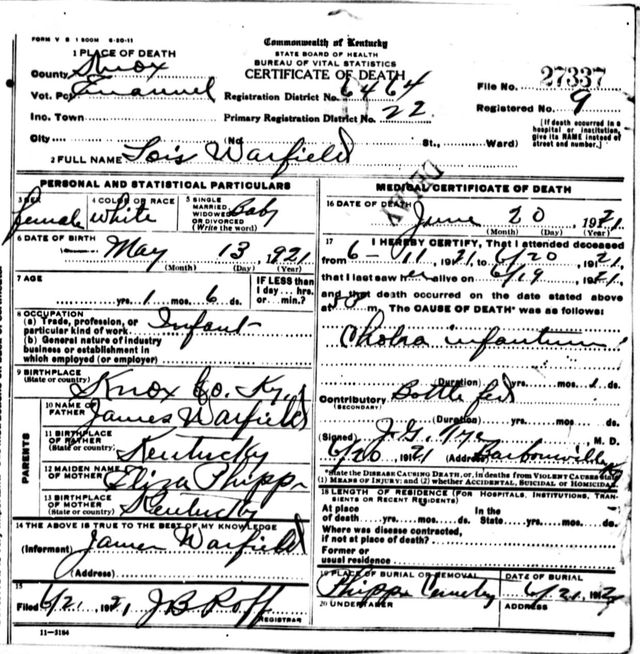 FORM V S 1 500M 6-20-11
Commonwealth of Kentucky
STATE BOARD OF HEALTH
BUREAU OF VITAL STATISTICS
CERTIFICATE OF DEATH
1 PLACE OF DEATH
County Knox
Vot. Pct. Emanuel
Inc. Town
City
Registration District No. 6464
Primary Registration District No. 22
(No. St., Ward)
File No. 27337
Registered No. 9
(If death occurred in a hospital or institution, give its NAME instead of street and number.)
2 FULL NAME Lois Warfield
DELAY
PERSONAL AND STATISTICAL PARTICULARS
3 SEX Female
4 COLOR OR RACE White
5 SINGLE MARRIED, WIDOWED OR DIVORCED (Write the word) Baby
6 DATE OF BIRTH May 13, 1921
(Month) (Day) (Year)
7 AGE
yrs. 1 mos. 6 ds.
IF LESS than 1 day... hrs. or min.?
8 OCCUPATION
(a) Trade, profession, or particular kind of work Infant
(b) General nature of industry business or establishment in which employed (or employer)
9 BIRTHPLACE (State or country) Knox Co. Ky
PARENTS
10 NAME OF FATHER James Warfield
11 BIRTHPLACE OF FATHER (State or country) Kentucky
12 MAIDEN NAME OF MOTHER Eliza Phipps
13 BIRTHPLACE OF MOTHER (State or country) Kentucky
14 THE ABOVE IS TRUE TO THE BEST OF MY KNOWLEDGE
(Informant) James Warfield
(Address)
15
Filed 6/21, 1921 J B Roff
REGISTRAR
11-3184
MEDICAL CERTIFICATE OF DEATH
16 DATE OF DEATH June 20 1921
(Month) (Day) (Year)
17 I HEREBY CERTIFY, That I attended deceased
from 6-11, 1921, to 6/20, 1921,
that I last saw her alive on 6/19, 1921,
and that death occurred on the date stated above
at m. The CAUSE OF DEATH* was as follows:
Cholra infantum
(Duration) yrs. mos. ds.
Contributory (SECONDARY) Bottle fed
(Duration) yrs. mos. ds.
(Signed) J.G. Tye M. D.
6/20 1921 (Address) Barbourville Ky
*State the DISEASE CAUSING DEATH, or, in deaths from VIOLENT CAUSES state (1) MEANS OF INJURY; and (2) whether ACCIDENTAL, SUICIDAL or HOMICIDAL
18 LENGTH OF RESIDENCE (FOR HOSPITALS, INSTITUTIONS, TRANSIENTS OR RECENT RESIDENTS)
At place of death yrs. mos. ds. In the State yrs. mos. ds.
Where was disease contracted, if not at place of death?
Former or usual residence
19 PLACE OF BURIAL OR REMOVAL Phipps Cemetery
DATE OF BURIAL 6/21, 192
20 UNDERTAKER
ADDRESS